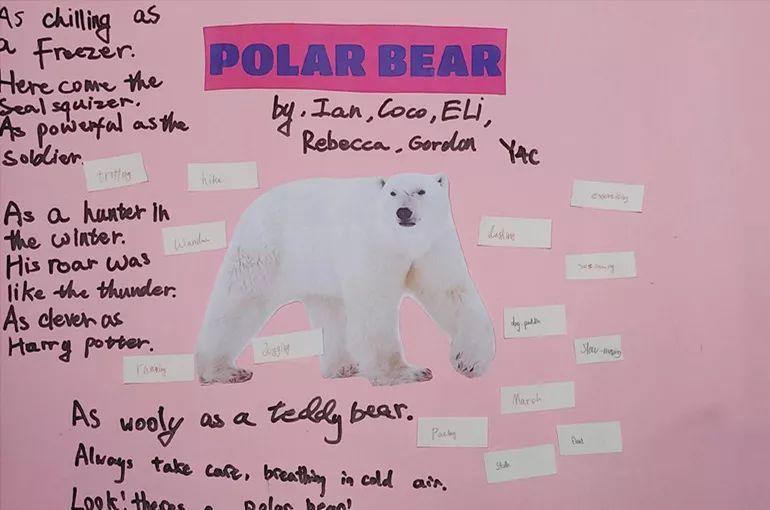 POLAR BEAR
by. Ian, Coco, ELi,
Rebecca, Gordon Y4C
As chilling as
a Freezer.
Here come the
Seal squizer.
As powerful as the
Soldier.
As a hunter in
the winter.
His roar was
like the thunder.
As clever as
Harry potter.
As wooly as a teddy bear.
Always take care, breathing in cold air.
Look! theres a polar bear!
trotting
hike
Wander
running
Jogging
dashing
exercising
dog-paddle
Slow-moving
March